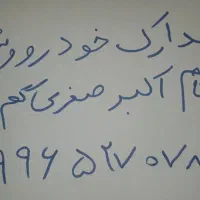 مدارک خودرو و
نام اکبر صفری گم
۹۹۶۵۲۷۰۷۸